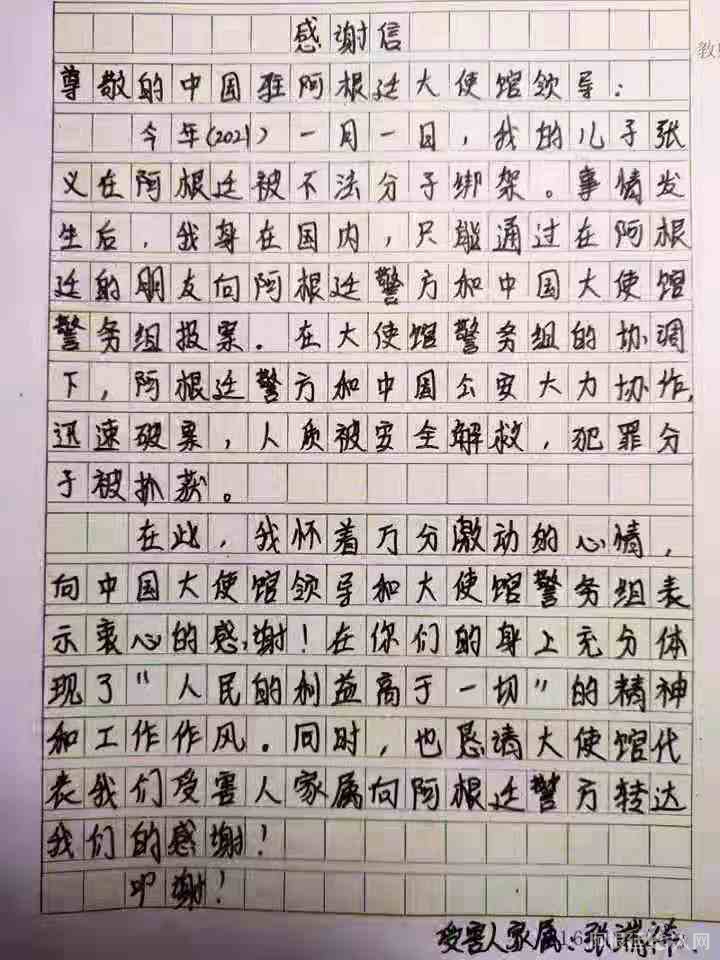 感谢信
尊敬的中国驻阿根廷大使馆领导：
今年(2021)一月一日，我的儿子张
义在阿根廷被不法分子绑架。事情发
生后，我身在国内，只能通过在阿根
廷的朋友向阿根廷警方和中国大使馆
警务组报案。在大使馆警务组的协调
下，阿根廷警方和中国公安大力协作，
迅速破案，人质被安全解救，犯罪分
子被抓获。
在此，我怀着万分激动的心情，
向中国大使馆领导和大使馆警务组表
示衷心的感谢！在你们的身上充分体
现了“人民的利益高于一切”的精神
和工作作风。同时，也恳请大使馆代
表我们受害人家属向阿根廷警方转达
我们的感谢！
叩谢！
受害人家属：张瑞